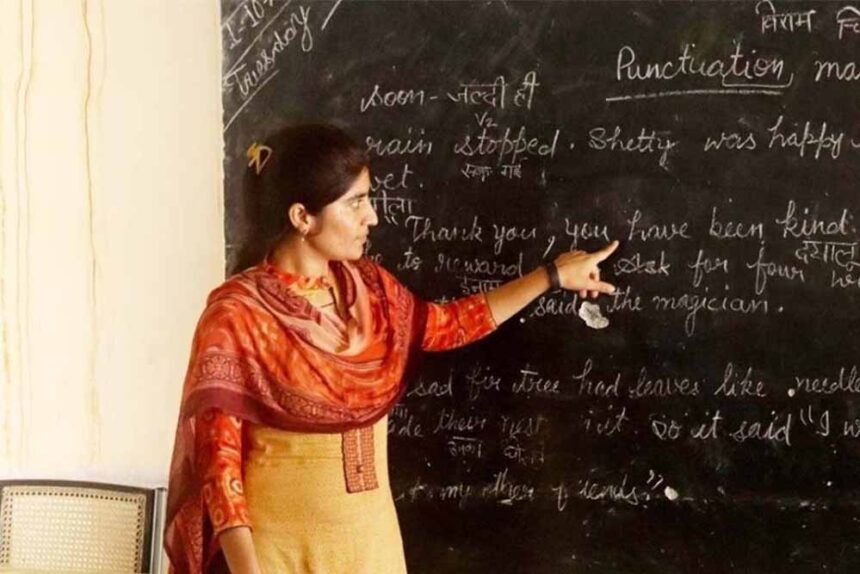 I-10
Tuesday
विराम चि
Punctuation, ma
soon - जल्दी ही
V2
rain stopped. Shetty was happy
रुक गई
wet.
गीला
"Thank you, you have been kind.
दयालु
to reward Ask for four
ईनाम
said the magician.
sad fir tree had leaves like needle
their nest in it. So it said "I w
उनका
my other friends."